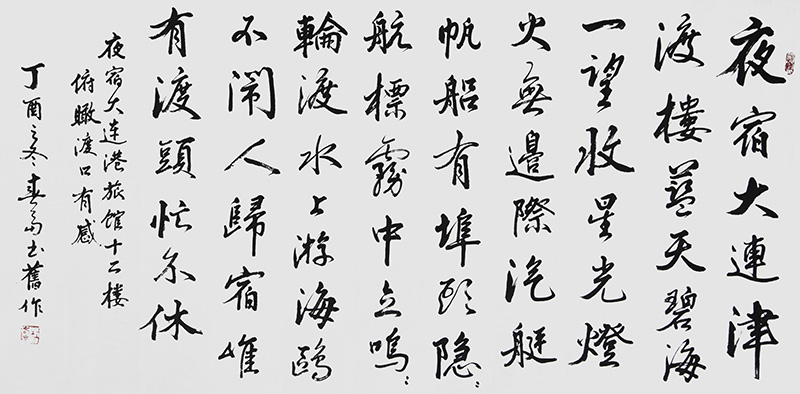 夜宿大連津
渡樓藍天碧海
一望收星光燈
火無邊際汽艇
帆船有埠頭隐:
航標霧中立鳴:
輪渡水上游海鷗
不鬧人歸宿惟
有渡頭忙不休
夜宿大连港旅馆十二楼
俯瞰渡口有感
丁酉之冬春富书舊作